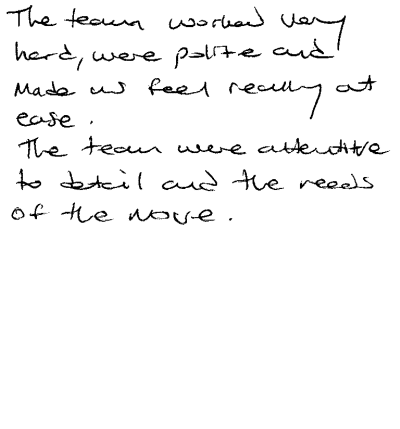 The team worked very
hard, were polite and
made us feel really at
ease.
The team were attentive
to detail and the needs
of the move.